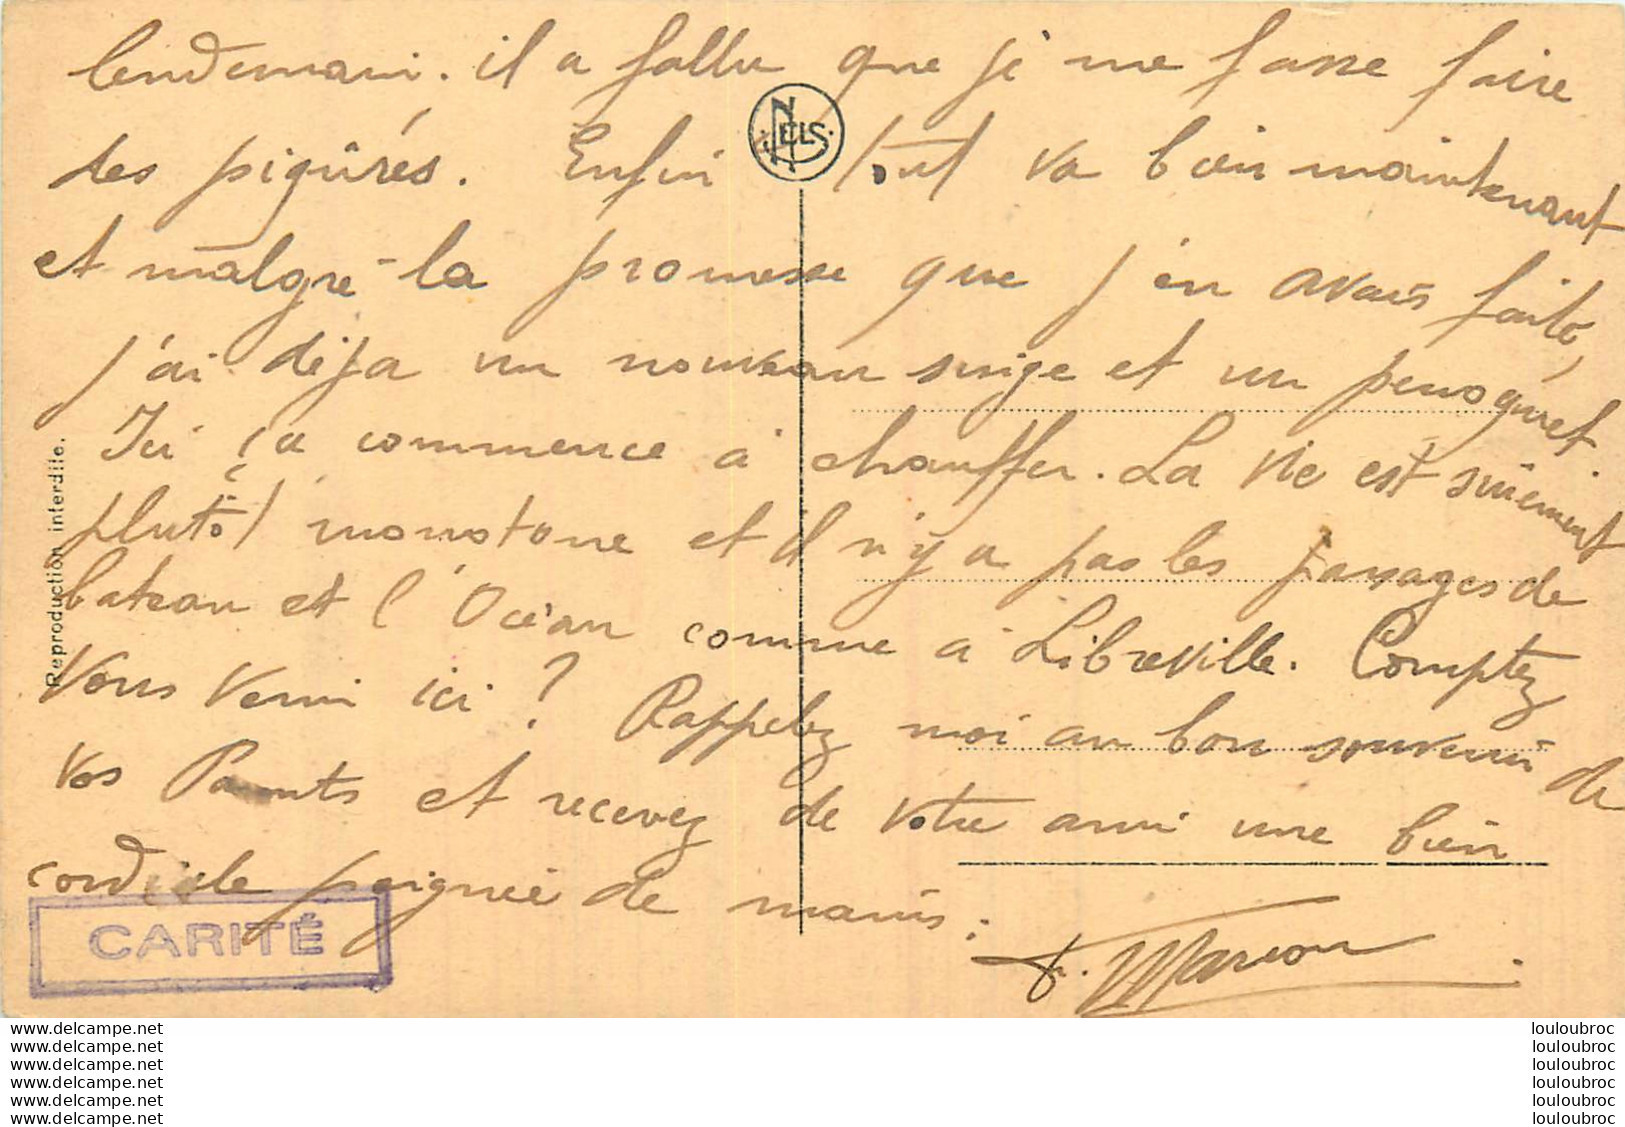 lendemain. il a fallu que je me fasse faire
des piqûres. Enfin tout va bien maintenant
NELS
et malgré la promesse que j'en avais faite,
j'ai déja un nouveau singe et un perroquet.
Ici ça commence à chauffer. La vie est sûrement
plutôt monotone et il n'y a pas les passages de
bateau et l'Océan comme à Libreville. Comptez
vous venir ici ? Rappelez moi au bon souvenir de
vos Parents et recevez de votre ami une bien
cordiale poignée de mains.
Marion
CARITÉ
Reproduction interdite.
www.delcampe.net
www.delcampe.net
www.delcampe.net
www.delcampe.net
www.delcampe.net
www.delcampe.net
louloubroc
louloubroc
louloubroc
louloubroc
louloubroc
louloubroc